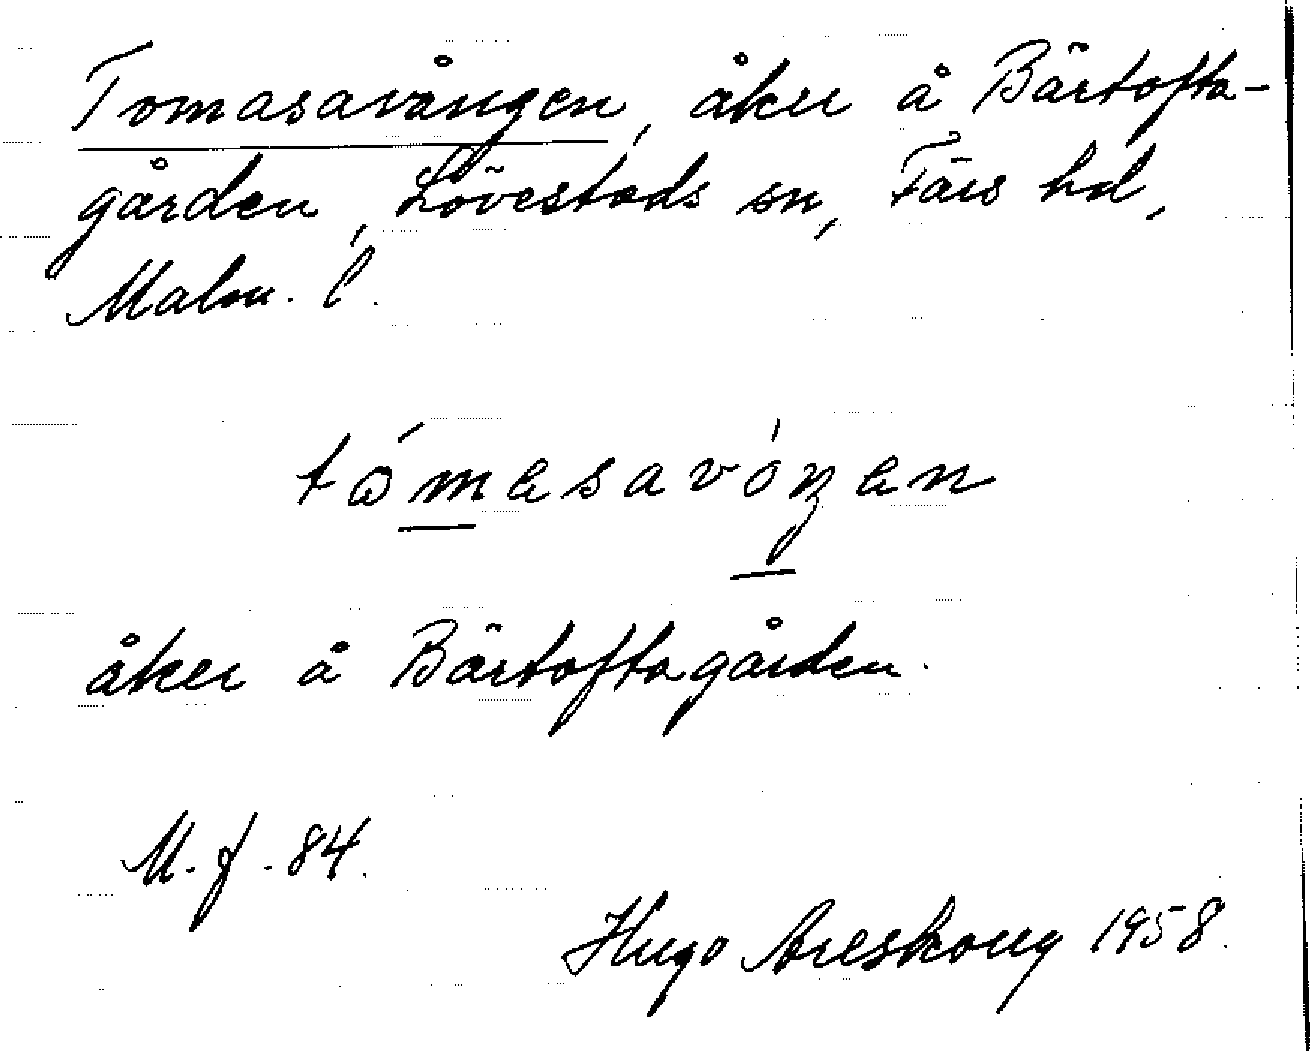 Tomasavången, åker å Bärtofta-
gården, Lövestads sn, Färs hd,
Malm. l.
tómasavóŋen
åker å Bärtoftagården.
M. f. 84.
Hugo Areskoug 1958.